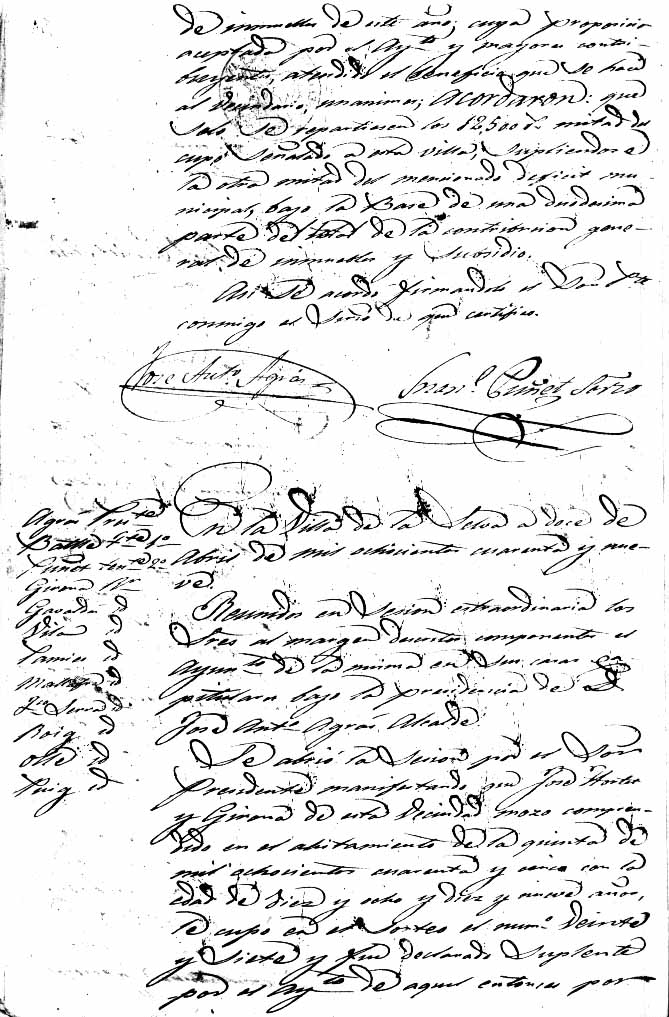 de inmuebles de este año; cuya proposicion
aceptada por el Ayto y mayores contri-
buyentes, atendido el beneficio que se hace
al vecindario, unanimes; Acordaron: que
solo se repartiesen los 82,500 rs mitad del
cupo señalado a esta villa, supliendose
la otra mitad del mencionado deficit mu-
nicipal, bajo la Base de una duodecima
parte del total de la contribucion gene-
ral de inmuebles y subsidio.
Asi se acordo firmandolo el Sor Pte
conmigo el Srio de que certifico.
Jose Anto Agrás
Juño Srio
Agrás Prete
Batlle tte 1o
Tuñet tente 2o
Girona Rr
Gavaldá id
Vila id
Pamies id
id
Serra id
Roig id
Olle id
Puig id
En la Villa de la Selva a doce de
Abril de mil ochocientos cuarenta y nue-
ve.
Reunidos en Sesion extraordinaria los
Sres al margen descritos componentes el
Ayunto de la misma en sus casas ca-
pitulares bajo la presidencia de D
Jose Anto Agrás Alcalde
Se abrió la Sesion por el Sor
Presidente manifestando que José Hortet
y Girona de esta Vecindad mozo compren-
dido en el alistamiento de la quinta de
mil ochocientos cuarenta y cinco con la
edad de diez y ocho y diez y nueve años,
le cupo en el sorteo el numo Veinte
y Siete y fue declarado Suplente
por el Ayto de aquel entonces por